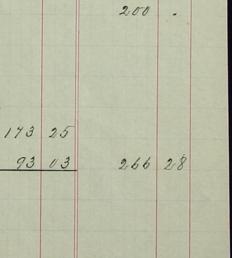 200 .
173 25
93 03 266 28